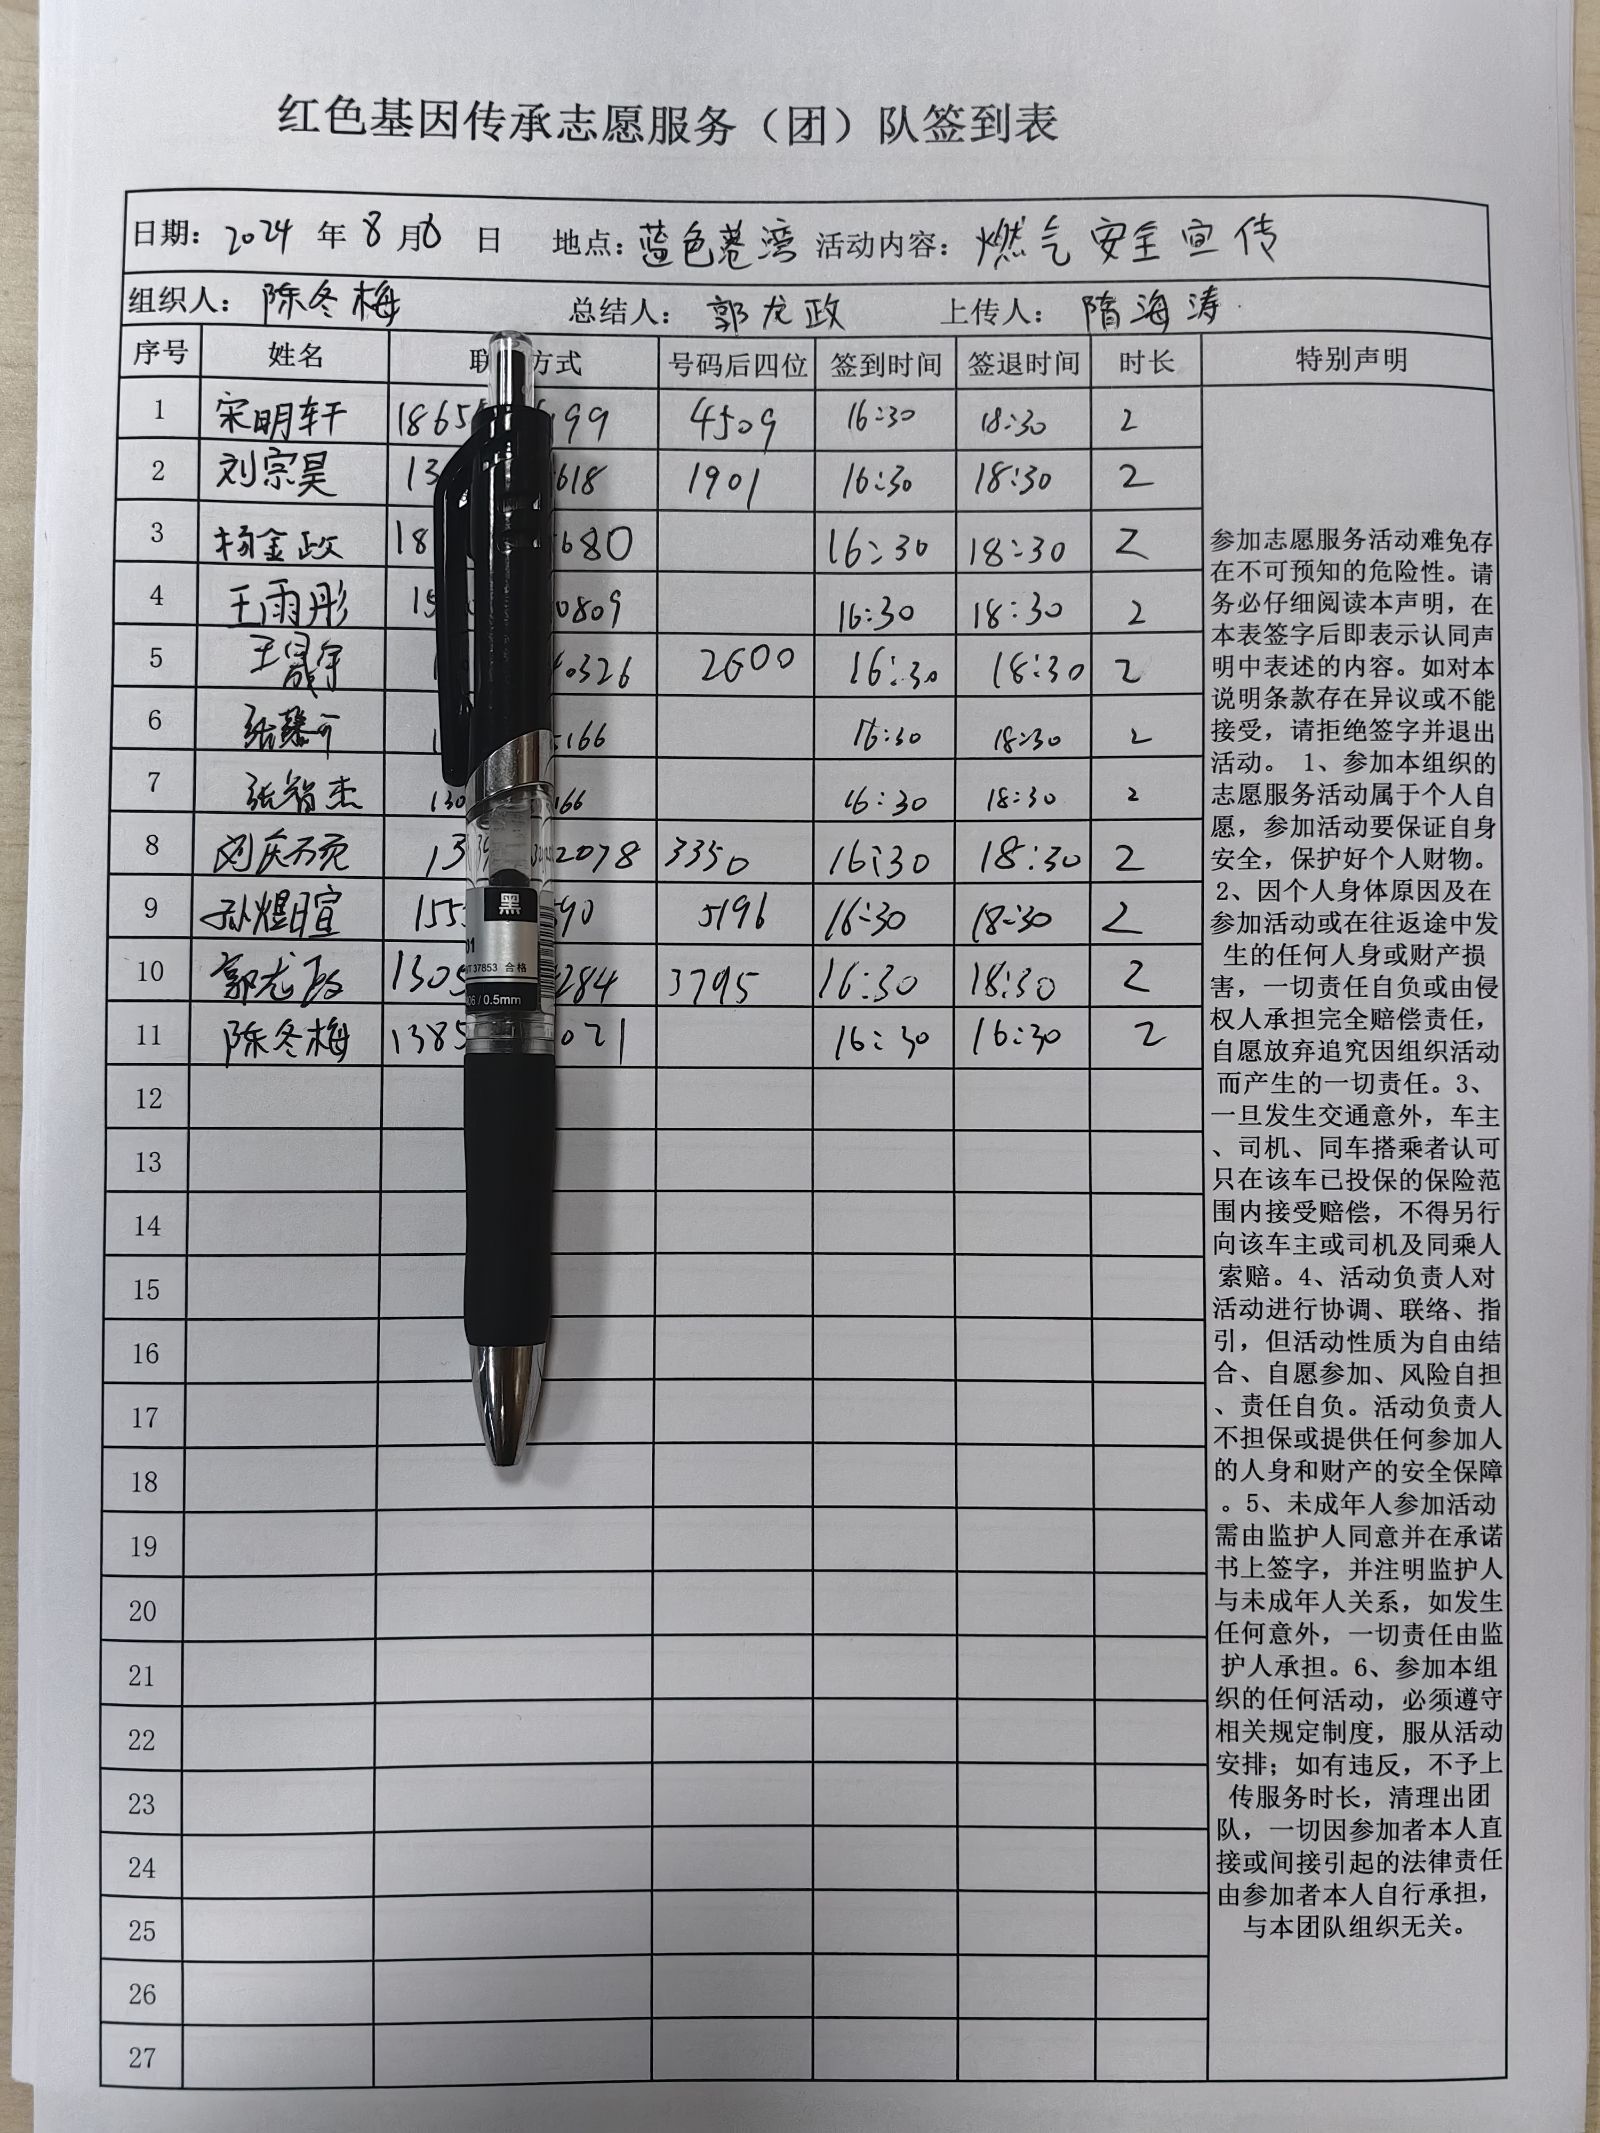 红色基因传承志愿服务（团）队签到表
日期：2024 年 8 月 6 日 地点：蓝色港湾 活动内容：燃气安全宣传
组织人：陈冬梅 总结人：郭龙政 上传人：隋海涛
序号 姓名 联 方式 号码后四位 签到时间 签退时间 时长 特别声明
1 宋明轩 1865 99 4509 16:30 18:30 2
2 刘宗昊 13 618 1901 16:30 18:30 2
3 杨金政 18 680 16:30 18:30 2
4 王雨彤 15 0809 16:30 18:30 2
5 王晟宇 0326 2600 16:30 18:30 2
6 张 166 16:30 18:30 2
7 张智杰 130 166 16:30 18:30 2
8 刘庆 13 2078 3350 16:30 18:30 2
9 孙煜暄 155 90 5196 16:30 18:30 2
10 郭龙政 1305 284 3795 16:30 18:30 2
11 陈冬梅 1385 021 16:30 16:30 2
12
13
14
15
16
17
18
19
20
21
22
23
24
25
26
27
参加志愿服务活动难免存
在不可预知的危险性。请
务必仔细阅读本声明，在
本表签字后即表示认同声
明中表述的内容。如对本
说明条款存在异议或不能
接受，请拒绝签字并退出
活动。 1、参加本组织的
志愿服务活动属于个人自
愿，参加活动要保证自身
安全，保护好个人财物。
2、因个人身体原因及在
参加活动或在往返途中发
生的任何人身或财产损
害，一切责任自负或由侵
权人承担完全赔偿责任，
自愿放弃追究因组织活动
而产生的一切责任。3、
一旦发生交通意外，车主
、司机、同车搭乘者认可
只在该车已投保的保险范
围内接受赔偿，不得另行
向该车主或司机及同乘人
索赔。4、活动负责人对
活动进行协调、联络、指
引，但活动性质为自由结
合、自愿参加、风险自担
、责任自负。活动负责人
不担保或提供任何参加人
的人身和财产的安全保障
。5、未成年人参加活动
需由监护人同意并在承诺
书上签字，并注明监护人
与未成年人关系，如发生
任何意外，一切责任由监
护人承担。6、参加本组
织的任何活动，必须遵守
相关规定制度，服从活动
安排；如有违反，不予上
传服务时长，清理出团
队，一切因参加者本人直
接或间接引起的法律责任
由参加者本人自行承担，
与本团队组织无关。
黑
01
37853 合格
/0.5mm